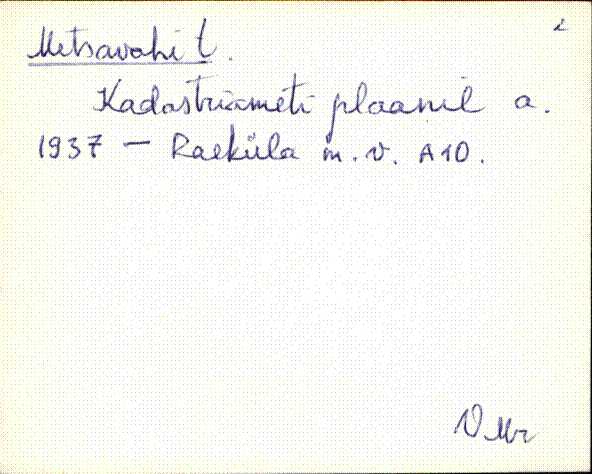 2
Metsavahi t.
Kadastriameti plaanil a.
1937 — Raeküla m. v. A10.
VMr